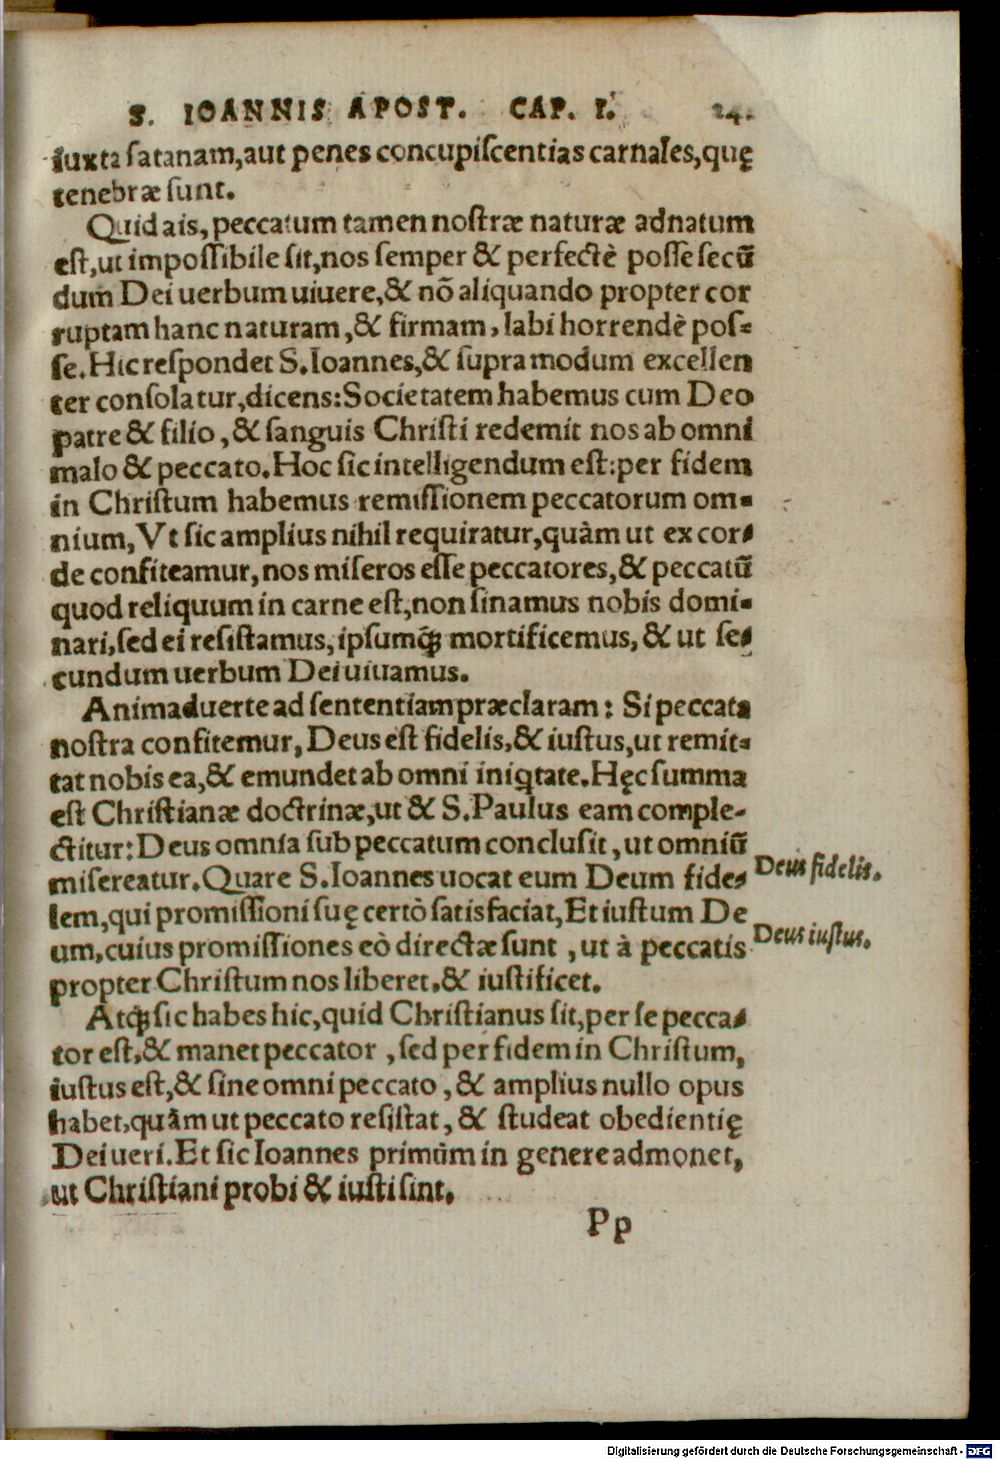 S. IOANNIS APOST. CAP. I. 24.
iuxta satanam, aut penes concupiscentias carnales, quę
tenebræ sunt.
Quid ais, peccatum tamen nostræ naturæ adnatum
est, ut impossibile sit, nos semper & perfectè posse secū
dum Dei uerbum uiuere, & nō aliquando propter cor
ruptam hanc naturam, & firmam, labi horrendè pos-
se. Hic respondet S. Ioannes, & supra modum excellen
ter consolatur, dicens: Societatem habemus cum Deo
patre & filio, & sanguis Christi redemit nos ab omni
malo & peccato. Hoc sic intelligendum est: per fidem
in Christum habemus remissionem peccatorum om-
nium, Vt sic amplius nihil requiratur, quàm ut ex cor-
de confiteamur, nos miseros esse peccatores, & peccatū
quod reliquum in carne est, non sinamus nobis domi-
nari, sed ei resistamus, ipsumq́ꝫ mortificemus, & ut se-
cundum uerbum Dei uiuamus.
Animaduerte ad sententiam præclaram: Si peccata
nostra confitemur, Deus est fidelis, & iustus, ut remit-
tat nobis ea, & emundet ab omni iniqtate. Hęc summa
est Christianæ doctrinæ, ut & S. Paulus eam comple-
ctitur: Deus omnia sub peccatum conclusit, ut omniū
misereatur. Quare S. Ioannes uocat eum Deum fide-
lem, qui promissioni suę certò satisfaciat, Et iustum De
um, cuius promissiones eò directæ sunt, ut à peccatis
propter Christum nos liberet, & iustificet.
Deus fidelis.
Deus iustus.
Atqꝫ sic habes hic, quid Christianus sit, per se pecca-
tor est, & manet peccator, sed per fidem in Christum,
iustus est, & sine omni peccato, & amplius nullo opus
habet, quàm ut peccato resistat, & studeat obedientię
Dei ueri. Et sic Ioannes primùm in genere admonet,
ut Christiani probi & iusti sint.
Pp
Digitalisierung gefördert durch die Deutsche Forschungsgemeinschaft - DFG